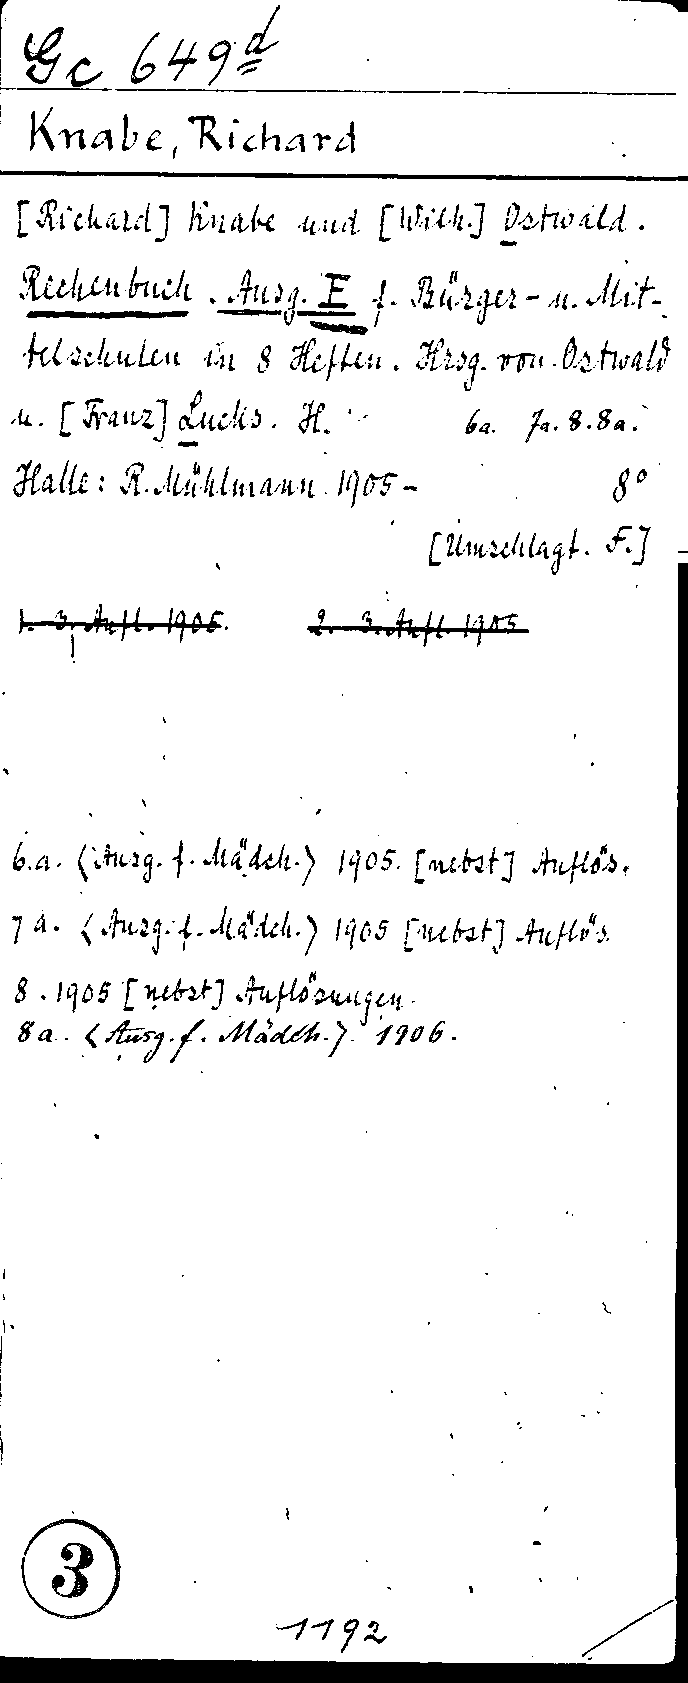 Gc 649d
Knabe, Richard
[Richard] Knabe und [Wilh.] Ostwald.
Rechenbuch. Ausg. E f. Bürger- u. Mit-
telschulen in 8 Heften. Hrsg. von Ostwald
u. [Franz] Lucks. H. 6a. 7a. 8. 8a.
Halle: R. Mühlmann 1905- 8°
[Umschlagt. F.]
1. 3. Aufl. 1905. 2. 3. Aufl. 1905
6.a. <Ausg. f. Mädch.> 1905. [nebst] Auflös.
7a. <Ausg. f. Mädch.> 1905 [nebst] Auflös.
8. 1905 [nebst] Auflösungen.
8a. <Ausg. f. Mädch.> 1906.
3
1192